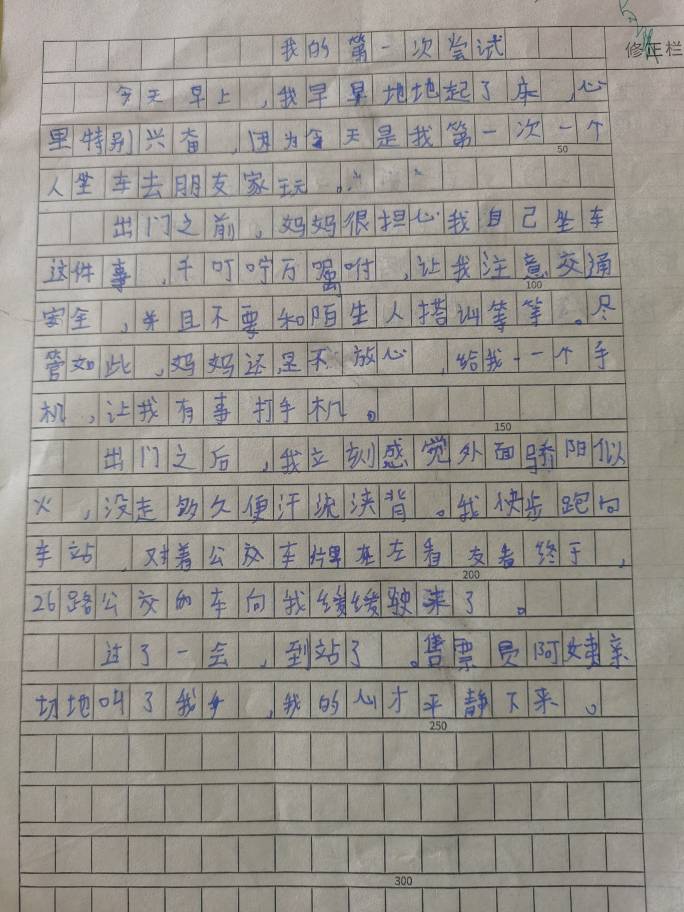 我的第一次尝试
修正栏
今天早上,我早早地地起了床,心
里特别兴奋,因为今天是我第一次一个
50
人坐车去朋友家玩。
出门之前,妈妈很担心我自己坐车
这件事,千叮咛万嘱咐,让我注意交通
100
安全,并且不要和陌生人搭讪等等。尽
管如此,妈妈还是不放心,给我一一个手
机,让我有事打手机。
150
出门之后,我立刻感觉外面骄阳似
火,没走多久便汗流浃背。我快步跑向
车站,对着公交车牌在左看友看终于,
200
26路公交的车向我缓缓驶来了。
过了一会,到站了。售票员阿姨亲
切地叫了我,我的心才平静下来。
250
300